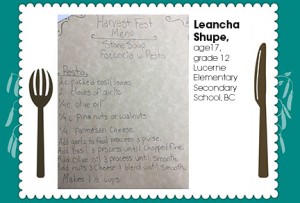 Harvest Fest
Menu
Stone Soup
Foccacia w Pesto
Pesto
2c packed basil leaves
2 cloves of garlic
1/4c olive oil
1/4c pine nuts or walnuts
1/4 Parmesan Cheese
Add garlic to food process & pulse.
Add basil & process until chopped fine.
Add olive oil & process until smooth.
Add nuts & cheese & blend until smooth.
Makes 1 1/2 cups
Leancha
Shupe,
age17,
grade 12
Lucerne
Elementary
Secondary
School, BC